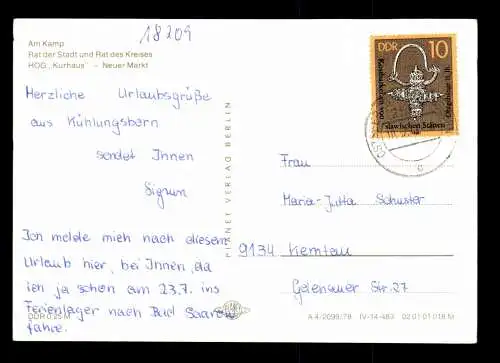 18209
Am Kamp
Rat der Stadt und Rat des Kreises
HOG „Kurhaus" – Neuer Markt
Herzliche Urlaubsgrüße
aus Kühlungsborn
sendet Ihnen
Sigrun
Ich melde mich nach diesem
Urlaub hier, bei Ihnen, da
ich ja schon am 23.7. ins
Ferienlager nach Bad Saarow
fahre.
DDR 0,25 M
PLANET VERLAG BERLIN
DDR 10
slawischen Stätten
Frau
Maria-Jutta Schuster
9134 Kemtau
Gelenauer Str. 27
A 4/2099/78 IV-14-483 02 01 01 018 M